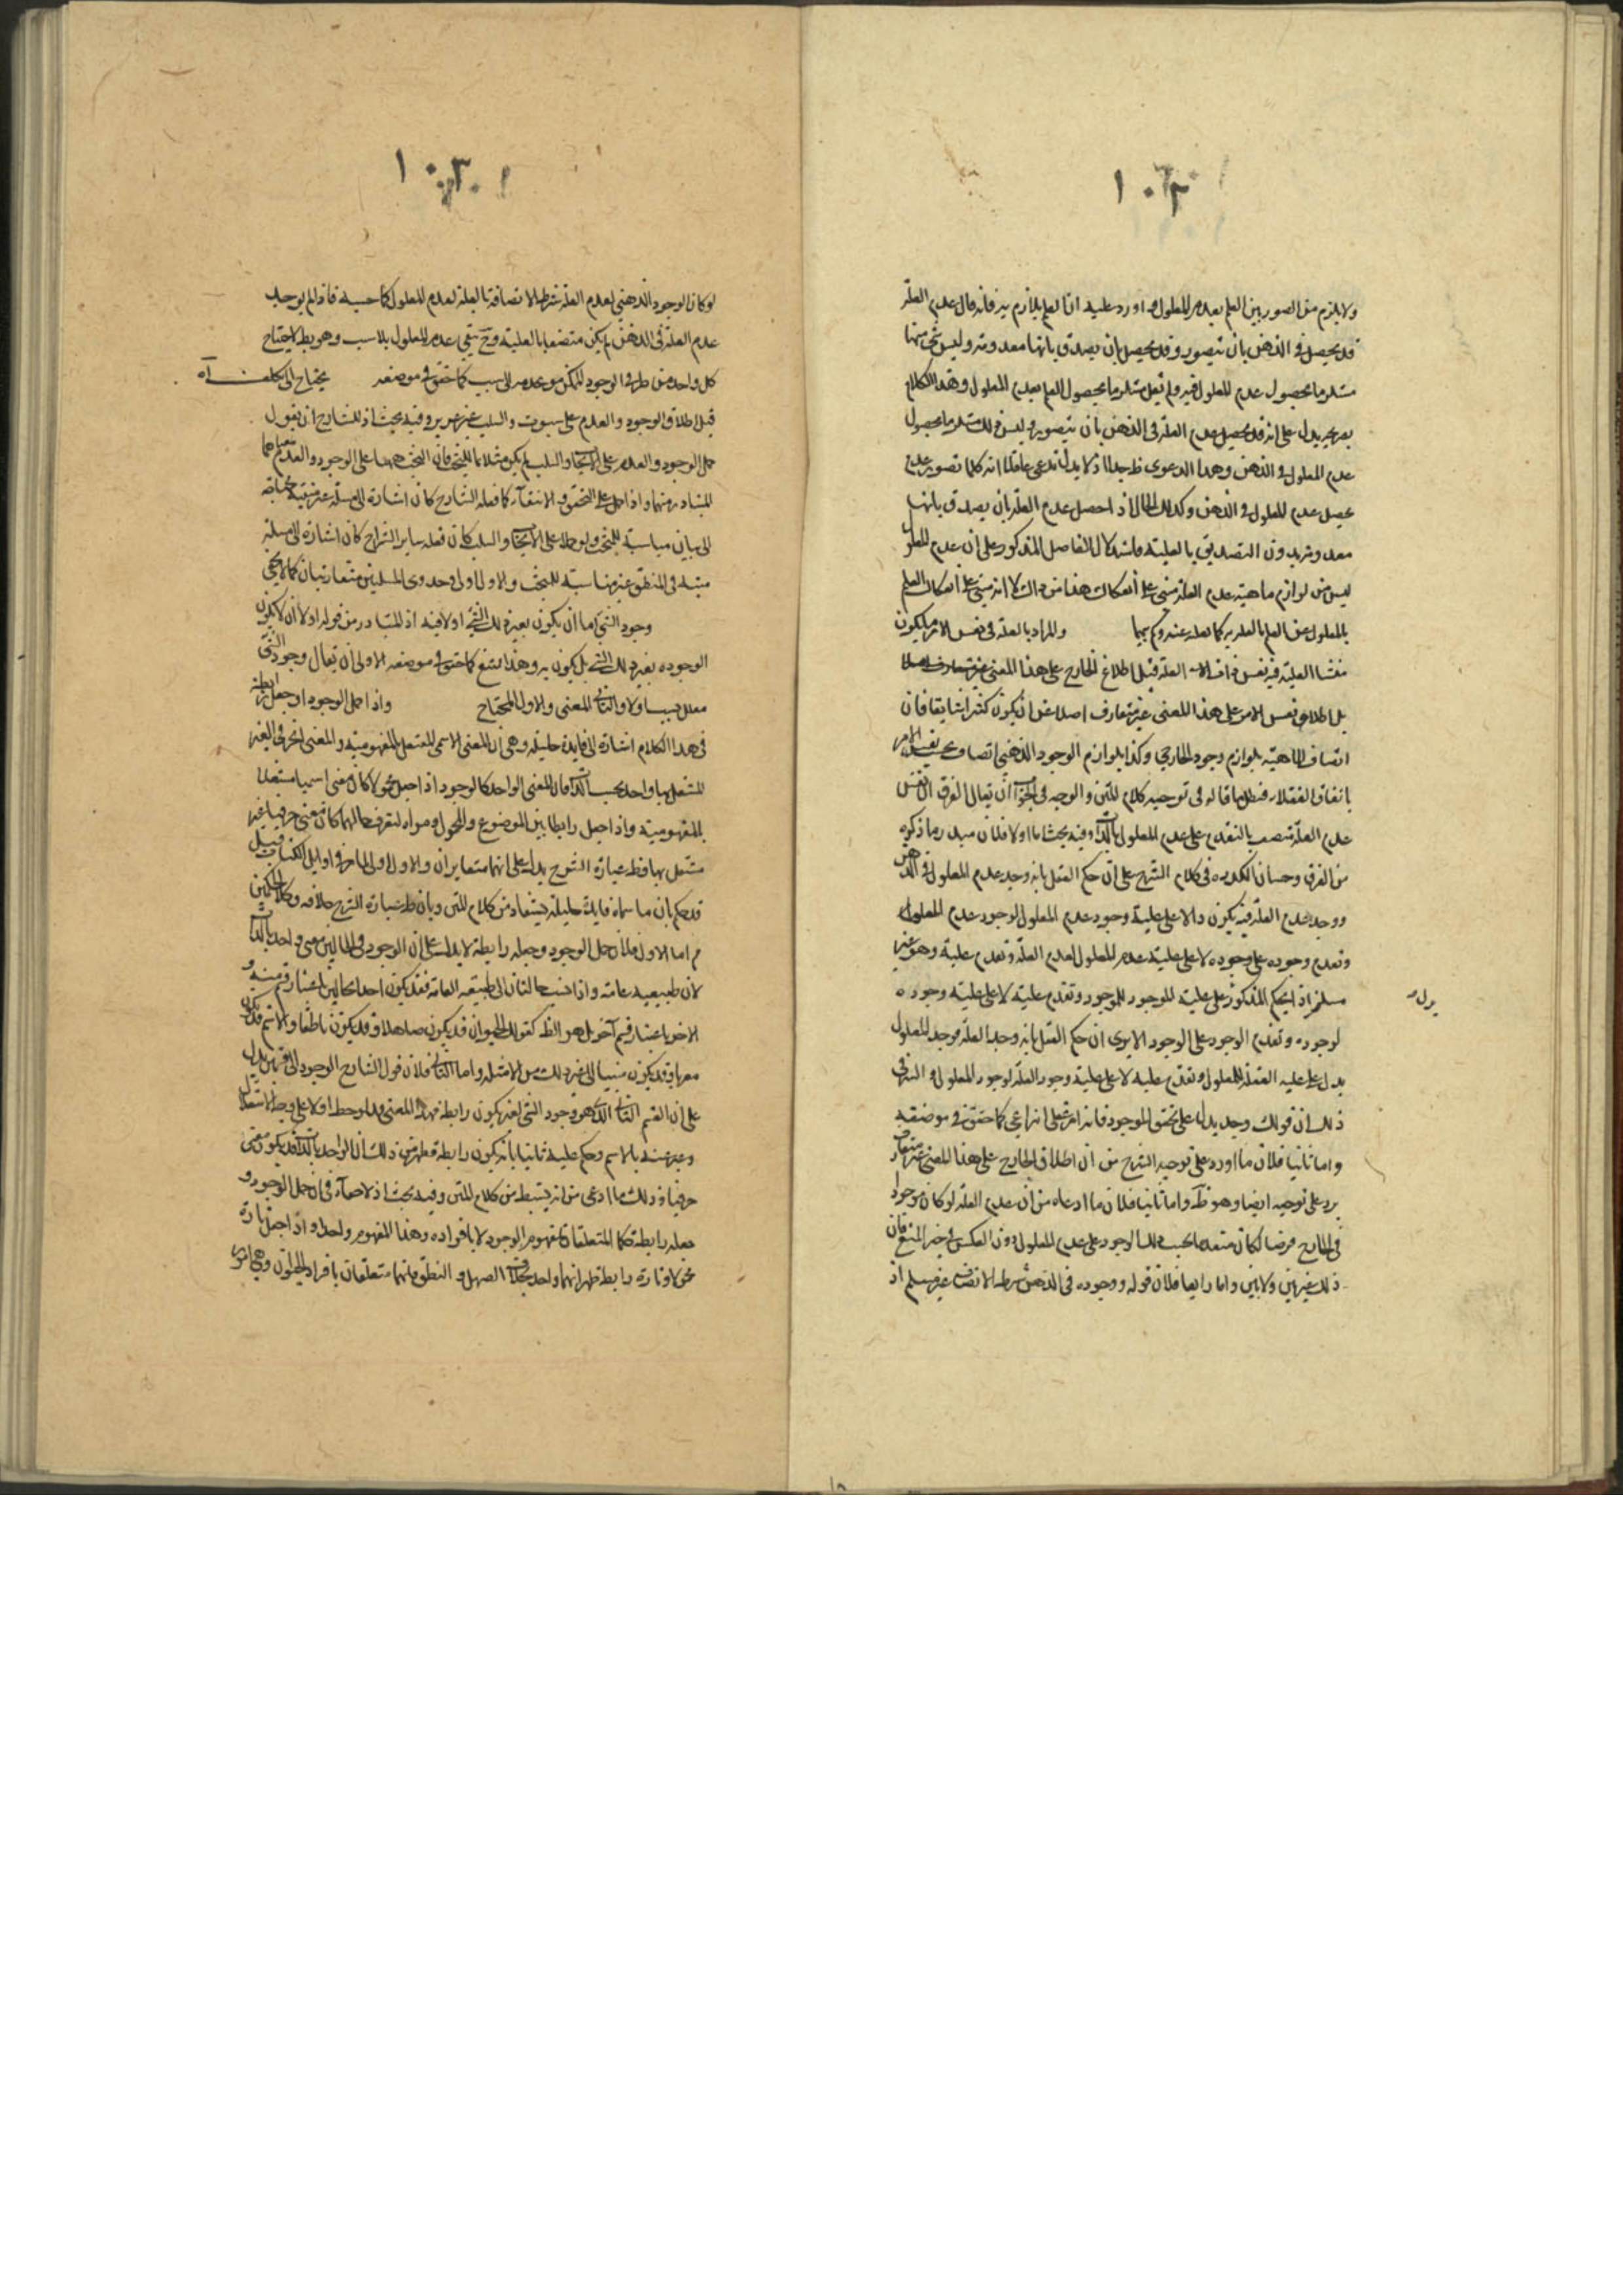 ١٠٢
ولا يلزم من الصور بين العلم بعدم المعلول اورد عليه ان العلم يلازم فانه قال عدم العلة
قد يحصل في الذهن بان يتصور وقد يحصل بان يصدق بانها معدومة وليس شئ منها
مستلزما لحصول عدم المعلول فيه ولم يقل مستلزما لحصول العلم بعدم المعلول وهذا الكلام
يدل على انه قد يحصل عدم العلة في الذهن بان يتصور وليس ذلك مستلزما لحصول
عدم المعلول في الذهن وهذا الدعوى اذ لا يدعى عاقل انه كلما تصور عدم
يحصل عدم المعلول في الذهن وكذلك الحال اذا حصل عدم العلة بان يصدق بانها
معدومة بدون التصديق بالعلية واستدلال الفاضل المذكور على ان عدم المعلول
ليس من لوازم ماهية عدم العلة مبني على انفكاك هذا من ذاك لا انه مبني على انفكاك العلم
بالمعلول عن العلم بالعلة كما نقله عنه والمراد بالعلة في نفس الامر ما يكون
منشا العلية فيه نفس ذات العلة قيل اطلاق الخارج على هذا المعنى غير متعارف اصلا
بل اطلاق نفس الامر على هذا المعنى غير متعارف اصلا عن ان يكون كثيرا شايعا فان
اتصاف الماهية بلوازم وجود الخارجي وكذا بلوازم الوجود الذهني اتصاف بحسب نفس الامر
باتفاق العقلاء فبطل ما قاله في توجيه كلام المتن والوجه في الجواب ان يقال الفرق ان نفس
عدم العلة متصف بالتقدم على عدم المعلول بالذات وفيه بحث اما اولا فلان ما ذكره
من الفرق وحسبان انه في كلام الشرح على ان حكم العقل بانه وجد عدم المعلول في الذهن
ووجد عدم العلة فيه يكون دالا على علية وجود عدم المعلول لوجود عدم المعلول
وتقدم وجوده على وجوده لا على علية عدم المعلول لعدم العلة وتقدم علية وهو غير
مسلم اذ الحكم المذكور على علية الموجود للموجود وتقدم علية لا على علية وجوده
لوجوده وتقدم الوجود على الوجود الا يرى ان حكم العقل بانه وجد العلة فوجد المعلول
يدل على علية العلة للمعلول وتقدم عليه لا على علية وجود العلة لوجود المعلول والسر في
ذلك ان قولك وجد يدل على تحقق الموجود فانه امر انتزاعي كما حقق في موضعه
واما ثانيا فلان ما اورد على توجيه الشرح من ان اطلاق الخارج على هذا المعنى غير متعارف
يرد على توجيهه ايضا وهو ظ واما ثانيا فلان ما ادعاه من ان عدم العلة لو كان موجودا
في الخارج فرضا لكان متقدما بحسب ذلك الوجود على عدم المعلول دون العكس في حيز المنع فان
ذلك غير بين ولا مبين واما رابعا فلان قوله ووجوده في الذهن شرط الاتصاف غير مسلم اذ
يدل
١٠٣
لو كان الوجود الذهني لعدم العلة شرطا لاتصافه بالعلية لعدم المعلول كما حسبه فاذا لم يوجد
عدم العلة في الذهن لم يكن متصفا بالعلية وح يبقى عدم المعلول بلا سبب وهو بط لاحتياج
كل واحد من طرفي الوجود للممكن وعدمه الى سبب كما حقق في موضعه يحتاج الى تكلف اه
قيل اطلاق الوجود والعدم على ثبوت والسلب غير عزيز وفيه بحث اذ للشارح ان يقول
حمل الوجود والعدم على الايجاب والسلب لم يكن مثلا للبحث فان البحث ههنا على الوجود والعدم بمعناهما
المتبادر منهما واذا حمل على التحقق والانتفاء كما فعله الشارح كان اشارة الى مسئلة
الى بيان مناسبته للبحث ولو حمل على الايجاب والسلب كان فعله ساير الشراح كان اشارة الى مسئلة
مثبتة في المنطق غير مناسبة للبحث والاول اولى واحدى المسئلتين متقاربتان كما لا يخفى
وجود الشئ اما ان يكون بغيره ذلك الشئ اولا فيه اذ المتبادر من قوله اولا ان لا يكون
الوجود بغير ذلك الشئ بل يكون به وهذا ممتنع كما حقق في موضعه الاولى ان يقال وجود الشئ
معلل بسبب اولا والثاني المغنى والاول المحتاج واذا حمل الوجود او جعل رابطة
في هذا الكلام اشارة الى فايدة جليلة وهي ان المعنى الاسمي المستقل بالمفهومية والمعنى الحرفي الغير
المستقل بها واحد بحسب الذات فان المعنى الواحد كالوجود اذا جعل محمولا كان معنى اسميا مستقلا
بالمفهومية واذا جعل رابطا بين الموضوع والمحمول ومرآة لتعرف حالهما كان معنى حرفيا غير
مستقل بها وظ عبارة الشرح يدل على انهما متغايران والاول اولى الماخذ في اوايل الكتاب قيل
قد حكم بان ما سماه فايدة جليلة يستفاد من كلام المتن وبان ظ عبارة الشرح خلافه وكلا الحكمين
م اما الاول فلان حمل الوجود وجعله رابطة لا يدل على ان الوجود في الحالين معنى واحد بالذات
لان طبيعية عامة واذا نسب الحالتان الى طبيعة العامة فقد يكون احد الحالين باعتبار قسم منه و
الاخر باعتبار قسم آخر بل هو الظ كقولك الحيوان قد يكون صاهلا وقد يكون ناطقا والاسم قد يكون
معربا وقد يكون مبنيا الى غير ذلك من الامثلة واما الثاني فلان قول الشارح الوجود الى قسمين يدل
على ان القسم الثاني الذي هو وجود الشئ لغيره يكون رابطة فهذا المعنى قد لوحظ اولا على وجه الاستقلال
وعبر عنه بالاسم وحكم عليه ثانيا بانه يكون رابطة فظهر من ذلك ان الواحد بالذات قد يكون معنى
حرفيا وذلك ما ادعى من انه يستنبط من كلام المتن وفيه بحث اذ لا خفاء في ان حمل الوجود و
جعله رابطة حكمان متعلقان بمفهوم الوجود لا بافراده وهذا المفهوم واحد واذا جعل تارة
محمولا وتارة رابطة ظهر انهما واحد بخلاف الصهيل والنطق فانهما متعلقان بافراد الحيوان وهي امور